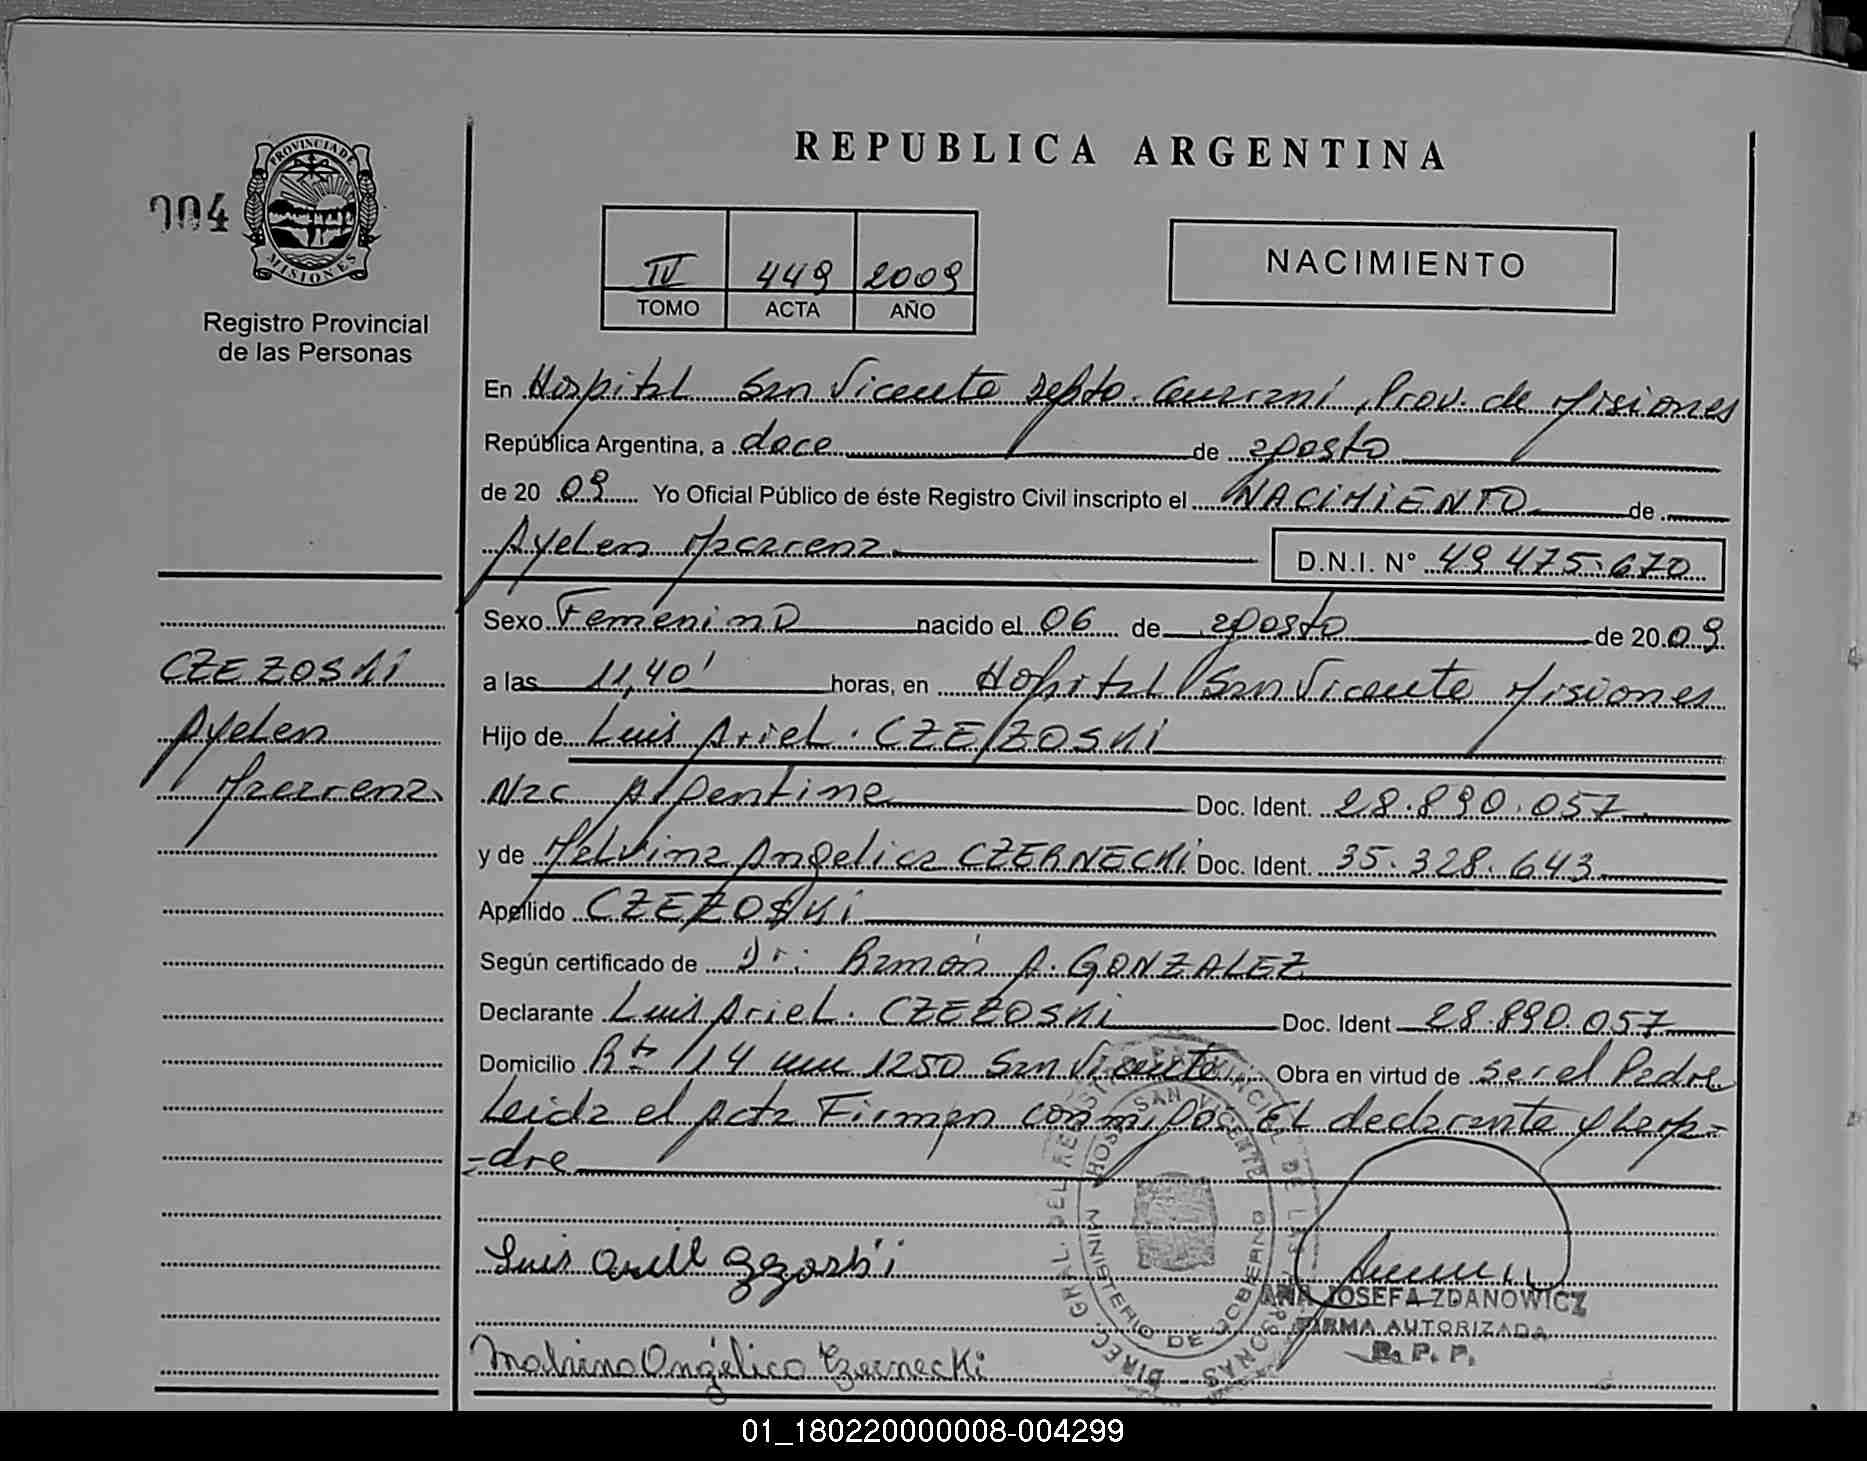 REPUBLICA ARGENTINA
004
PROVINCIA DE
MISIONES
Registro Provincial
de las Personas
IV 449 2009
TOMO ACTA AÑO
NACIMIENTO
En Hospital San Vicente Depto. Guaraní, Prov. de Misiones
República Argentina, a doce de agosto
de 20 09 Yo Oficial Público de éste Registro Civil inscripto el NACIMIENTO de
Ayelen Macarena D.N.I. N° 49.475.670
Sexo Femenino nacido el 06 de agosto de 20 09
a las 11,40' horas, en Hospital San Vicente Misiones
Hijo de Luis Ariel CZEZOSKI
Nac Argentina Doc. Ident. 28.890.057
y de Malvina Angelica CZERNECKI Doc. Ident. 35.328.643
Apellido CZEZOSKI
Según certificado de Dr: Ramón A. GONZALEZ
Declarante Luis Ariel CZEZOSKI Doc. Ident 28.890.057
Domicilio Rta 14 km 1250 San Vicente Obra en virtud de ser el Padre
Leida el Acta Firman conmigo El declarante y la ma-
-dre
CZEZOSKI
Ayelen
Macarena
Luis Ariel
Malvina Angélica Czernecki
DIREC. GRAL. DEL REGISTRO PROVINCIAL DE LAS PERSONAS
HOSP. SAN VICENTE
MINISTERIO DE GOBIERNO
ANA JOSEFA ZDANOWICZ
FIRMA AUTORIZADA
R. P. P.
01_180220000008-004299